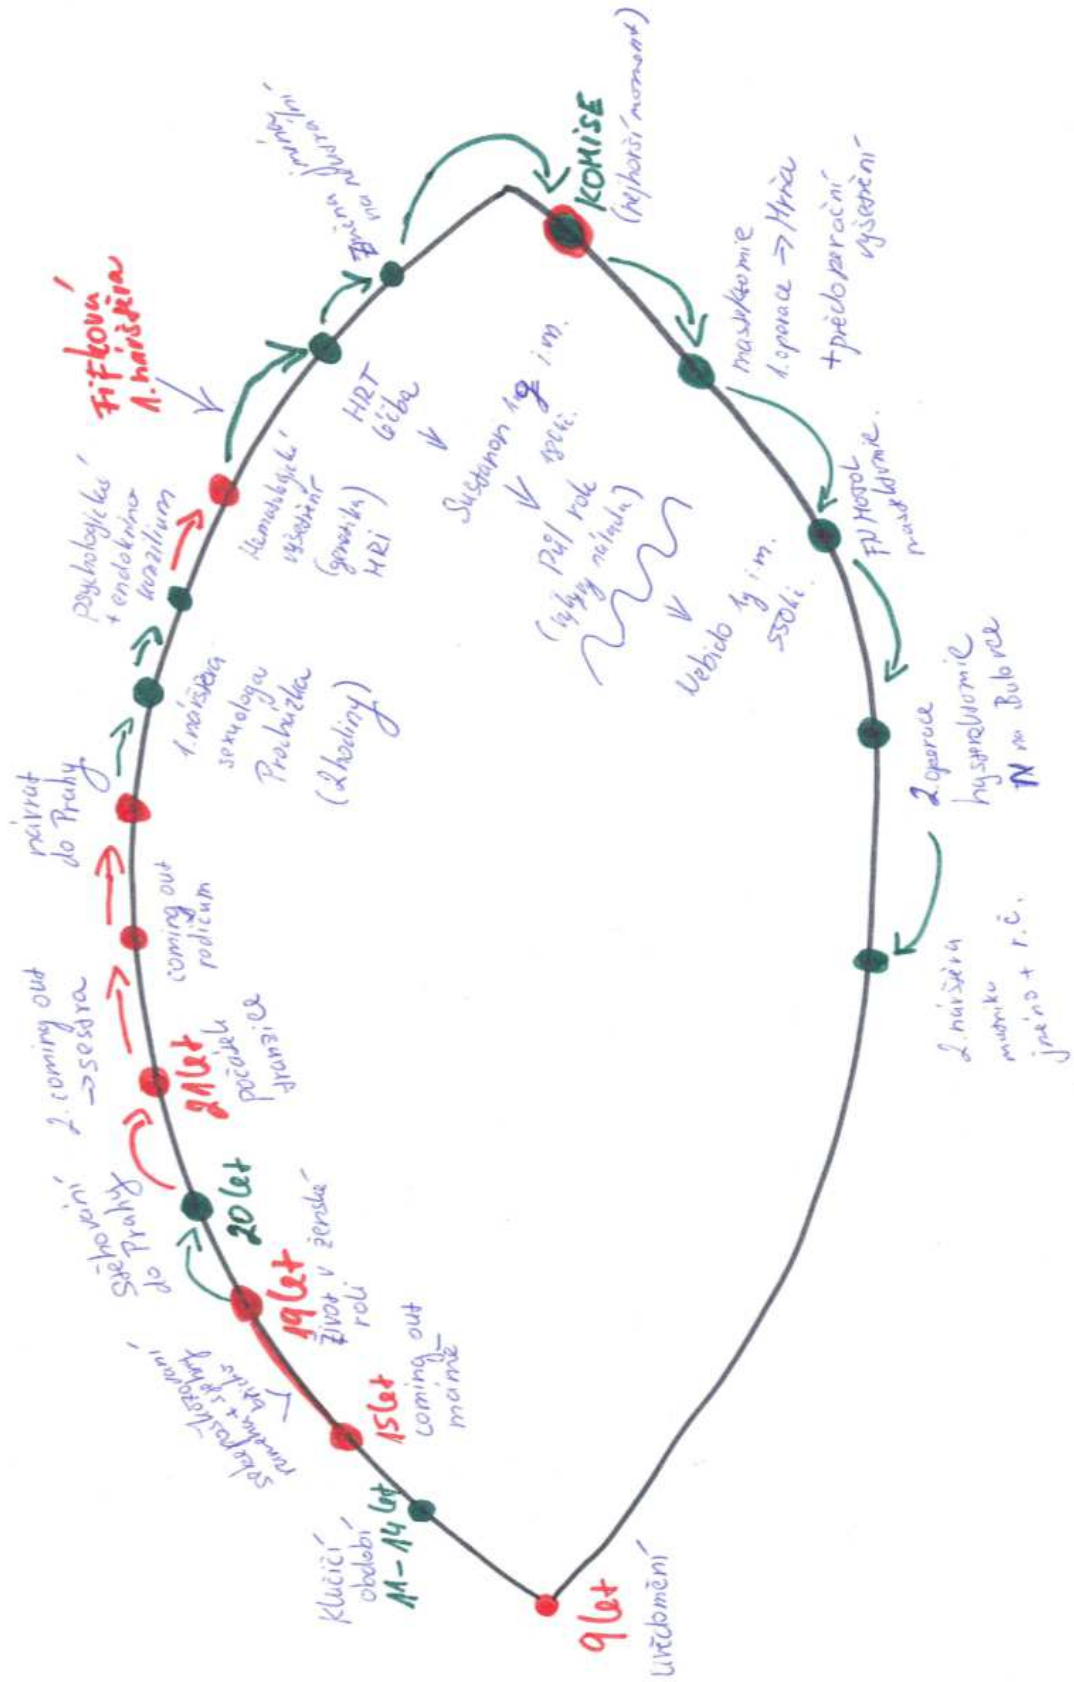 9 let
uvědomění
klučičí
období
11-14 let
15 let
coming out
mámě
sebepoškozování
břicho
19 let
život v ženské
roli
Stěhování
do Prahy
20 let
21 let
počátek
tranzice
2. coming out
→ sestra
coming out
rodičům
návrat
do Prahy
1. návštěva
sexuologa
Procházka
(2 hodiny)
psychologické
+ endokrino
konzilium
Hematologické
vyšetření
(genetika)
MRI
Fifková
1. návštěva
HRT
léčba
Sustanon
i.m.
půl rok
Nebido
i.m.
změna jména
na neutrální
KOMISE
(nejhorší moment)
mastektomie
1. operace → Mrňa
+ předoperační
vyšetření
FN Motol
2. operace
hysterektomie
na Bulovce
2. návštěva
jméno + r.č.